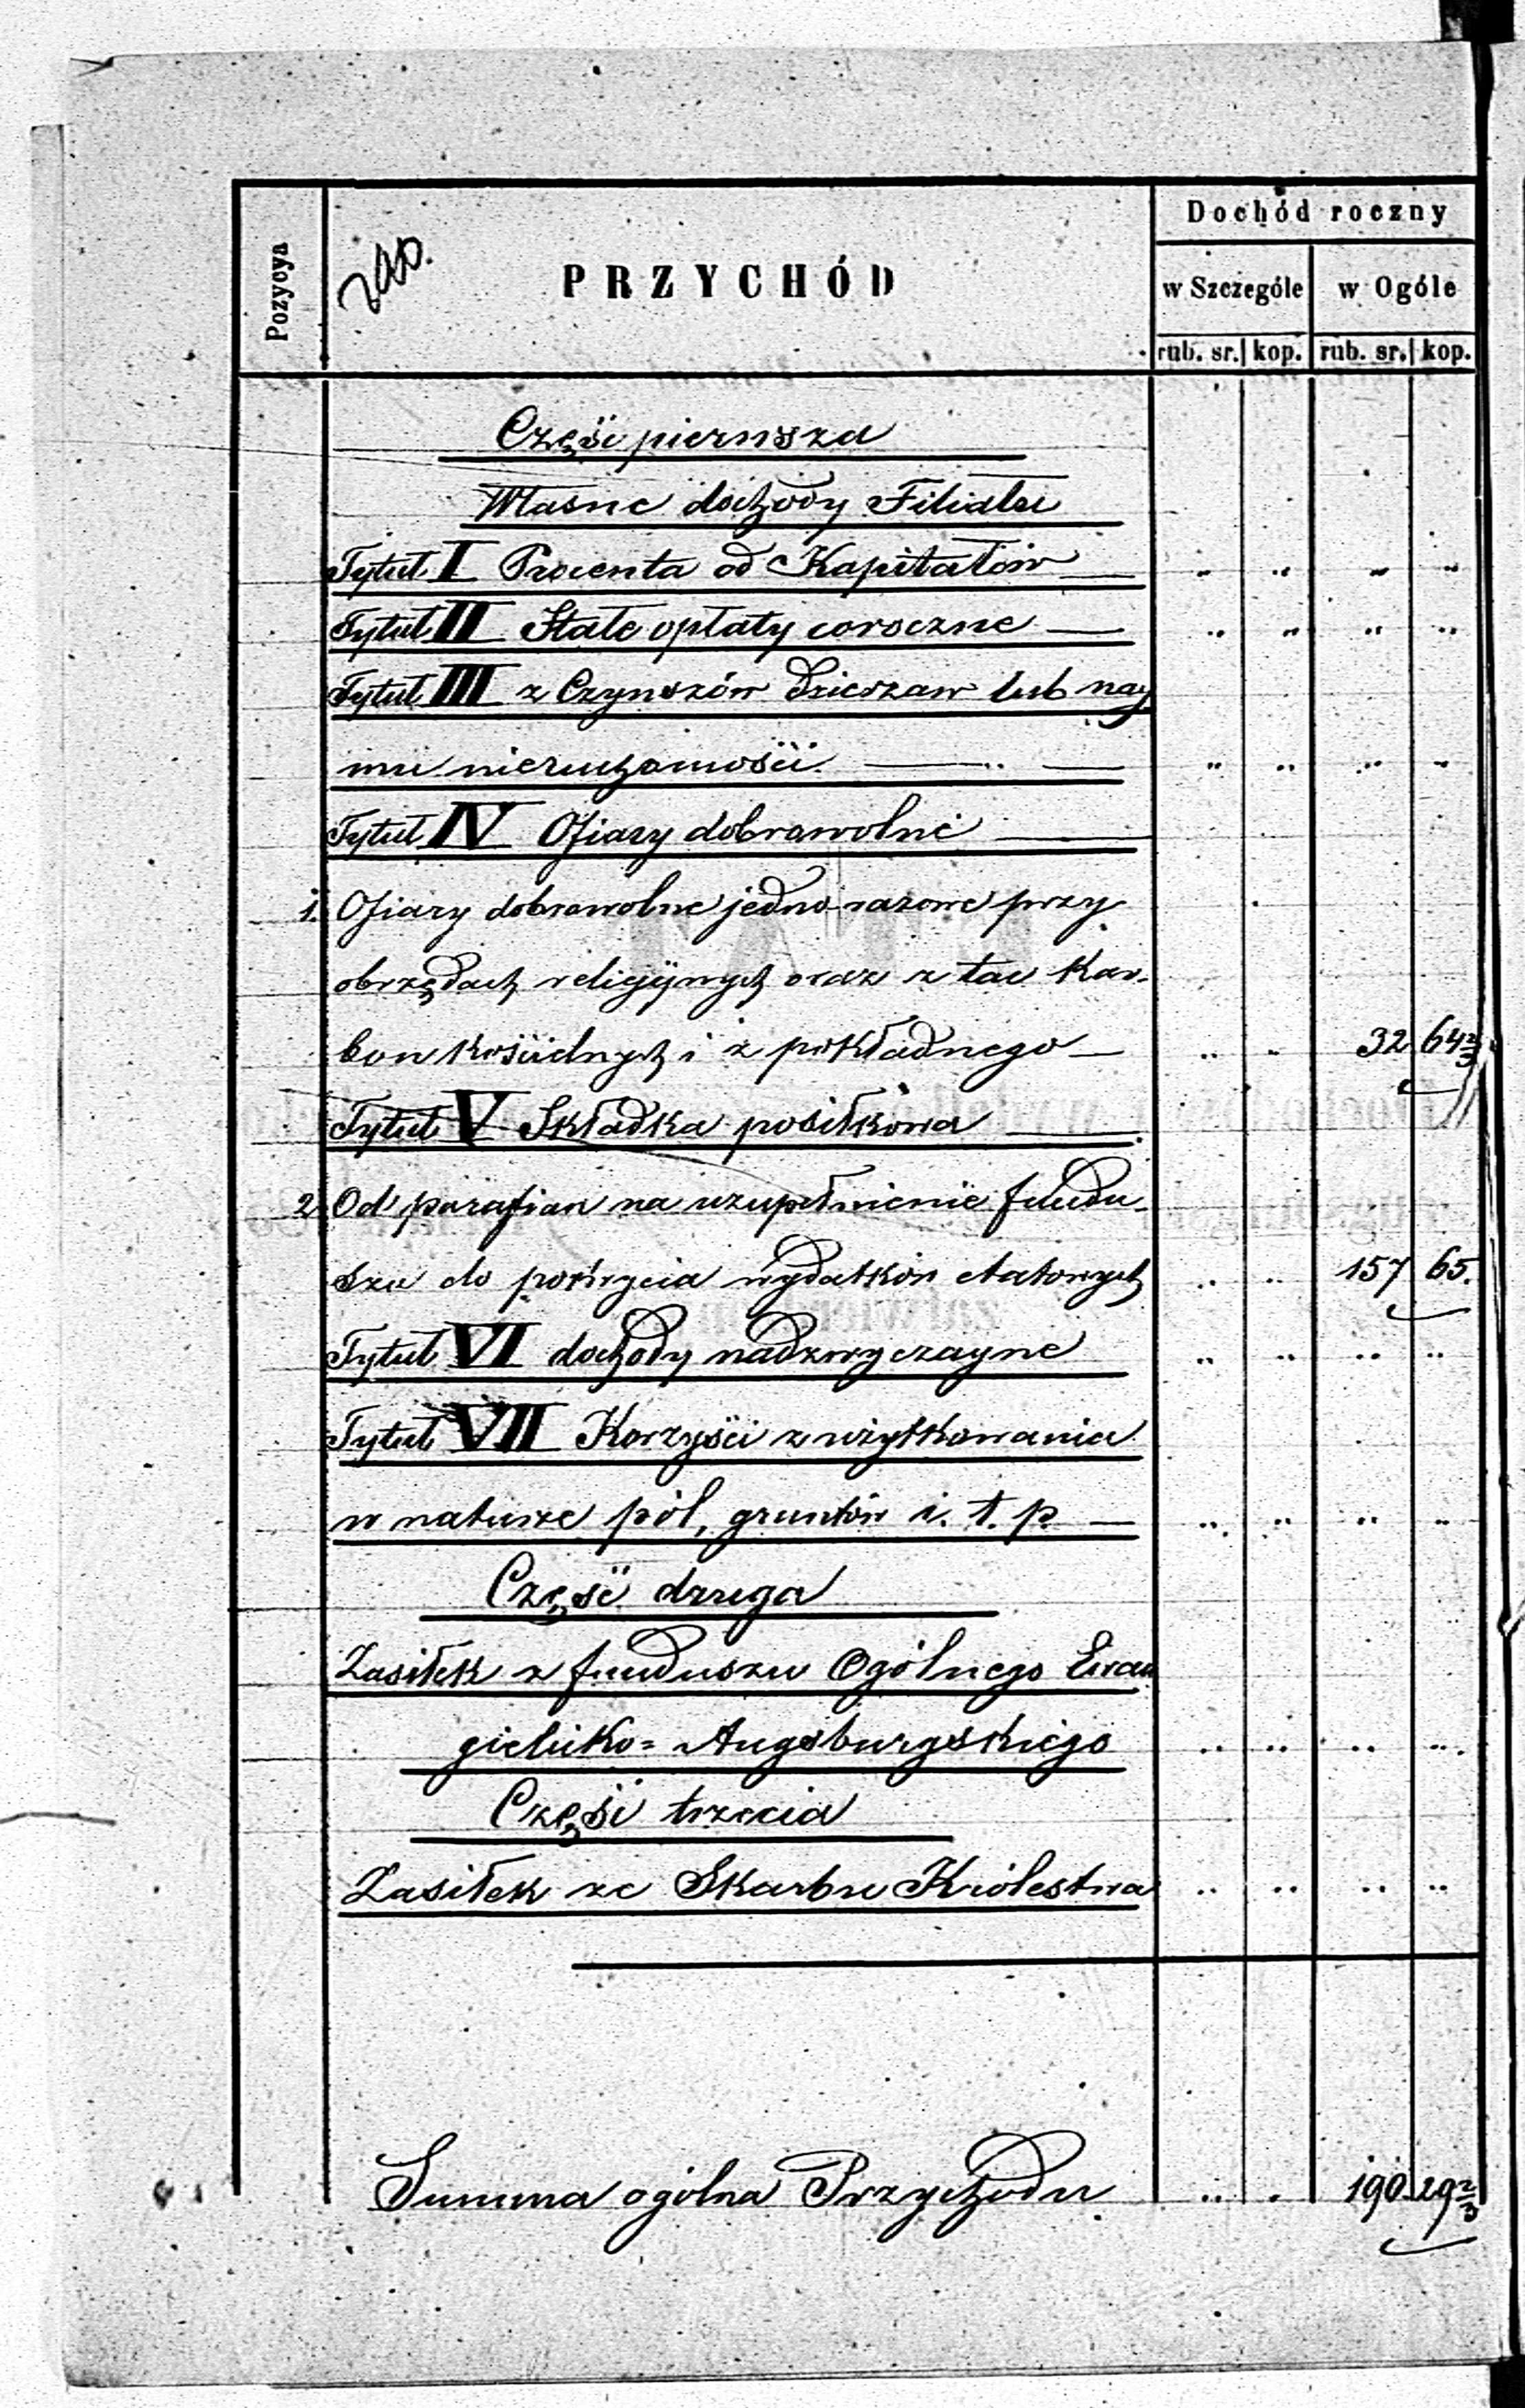 Dochód roczny
Pozycya
PRZYCHÓD
w Szczególe w Ogóle
rub. sr. kop. rub. sr. kop.
Część pierwsza
Własne dochody Filiału
Tytuł I Procenta od Kapitałów — " " " "
Tytuł II Stałe opłaty coroczne — " " " "
Tytuł III z Czynszów dzierzaw lub nay
mu nieruchomości. — " — " " " "
Tytuł IV Ofiary dobrowolne —
1. Ofiary dobrowolne jedno razowe przy
obrzędach religijnych oraz z tac Kar-
bon kościelnych i z pokładnego — " " 32 64 2/3
Tytuł V Składka posiłkowa —
2 Od parafian na uzupełnienie fundu-
szu do pokrycia wydatków etatowych " " 157 65.
Tytuł VI dochody nadzwyczayne " " " "
Tytuł VII Korzyści z użytkowania
w naturze pól, gruntów i. t. p. — " " " "
Część druga
Zasiłek z funduszu Ogólnego Ewan
gielicko= Augsburgskiego " " " "
Część trzecia
Zasiłek ze Skarbu Królestwa " " " "
Summa ogólna Przychodu " " 190 29 2/3